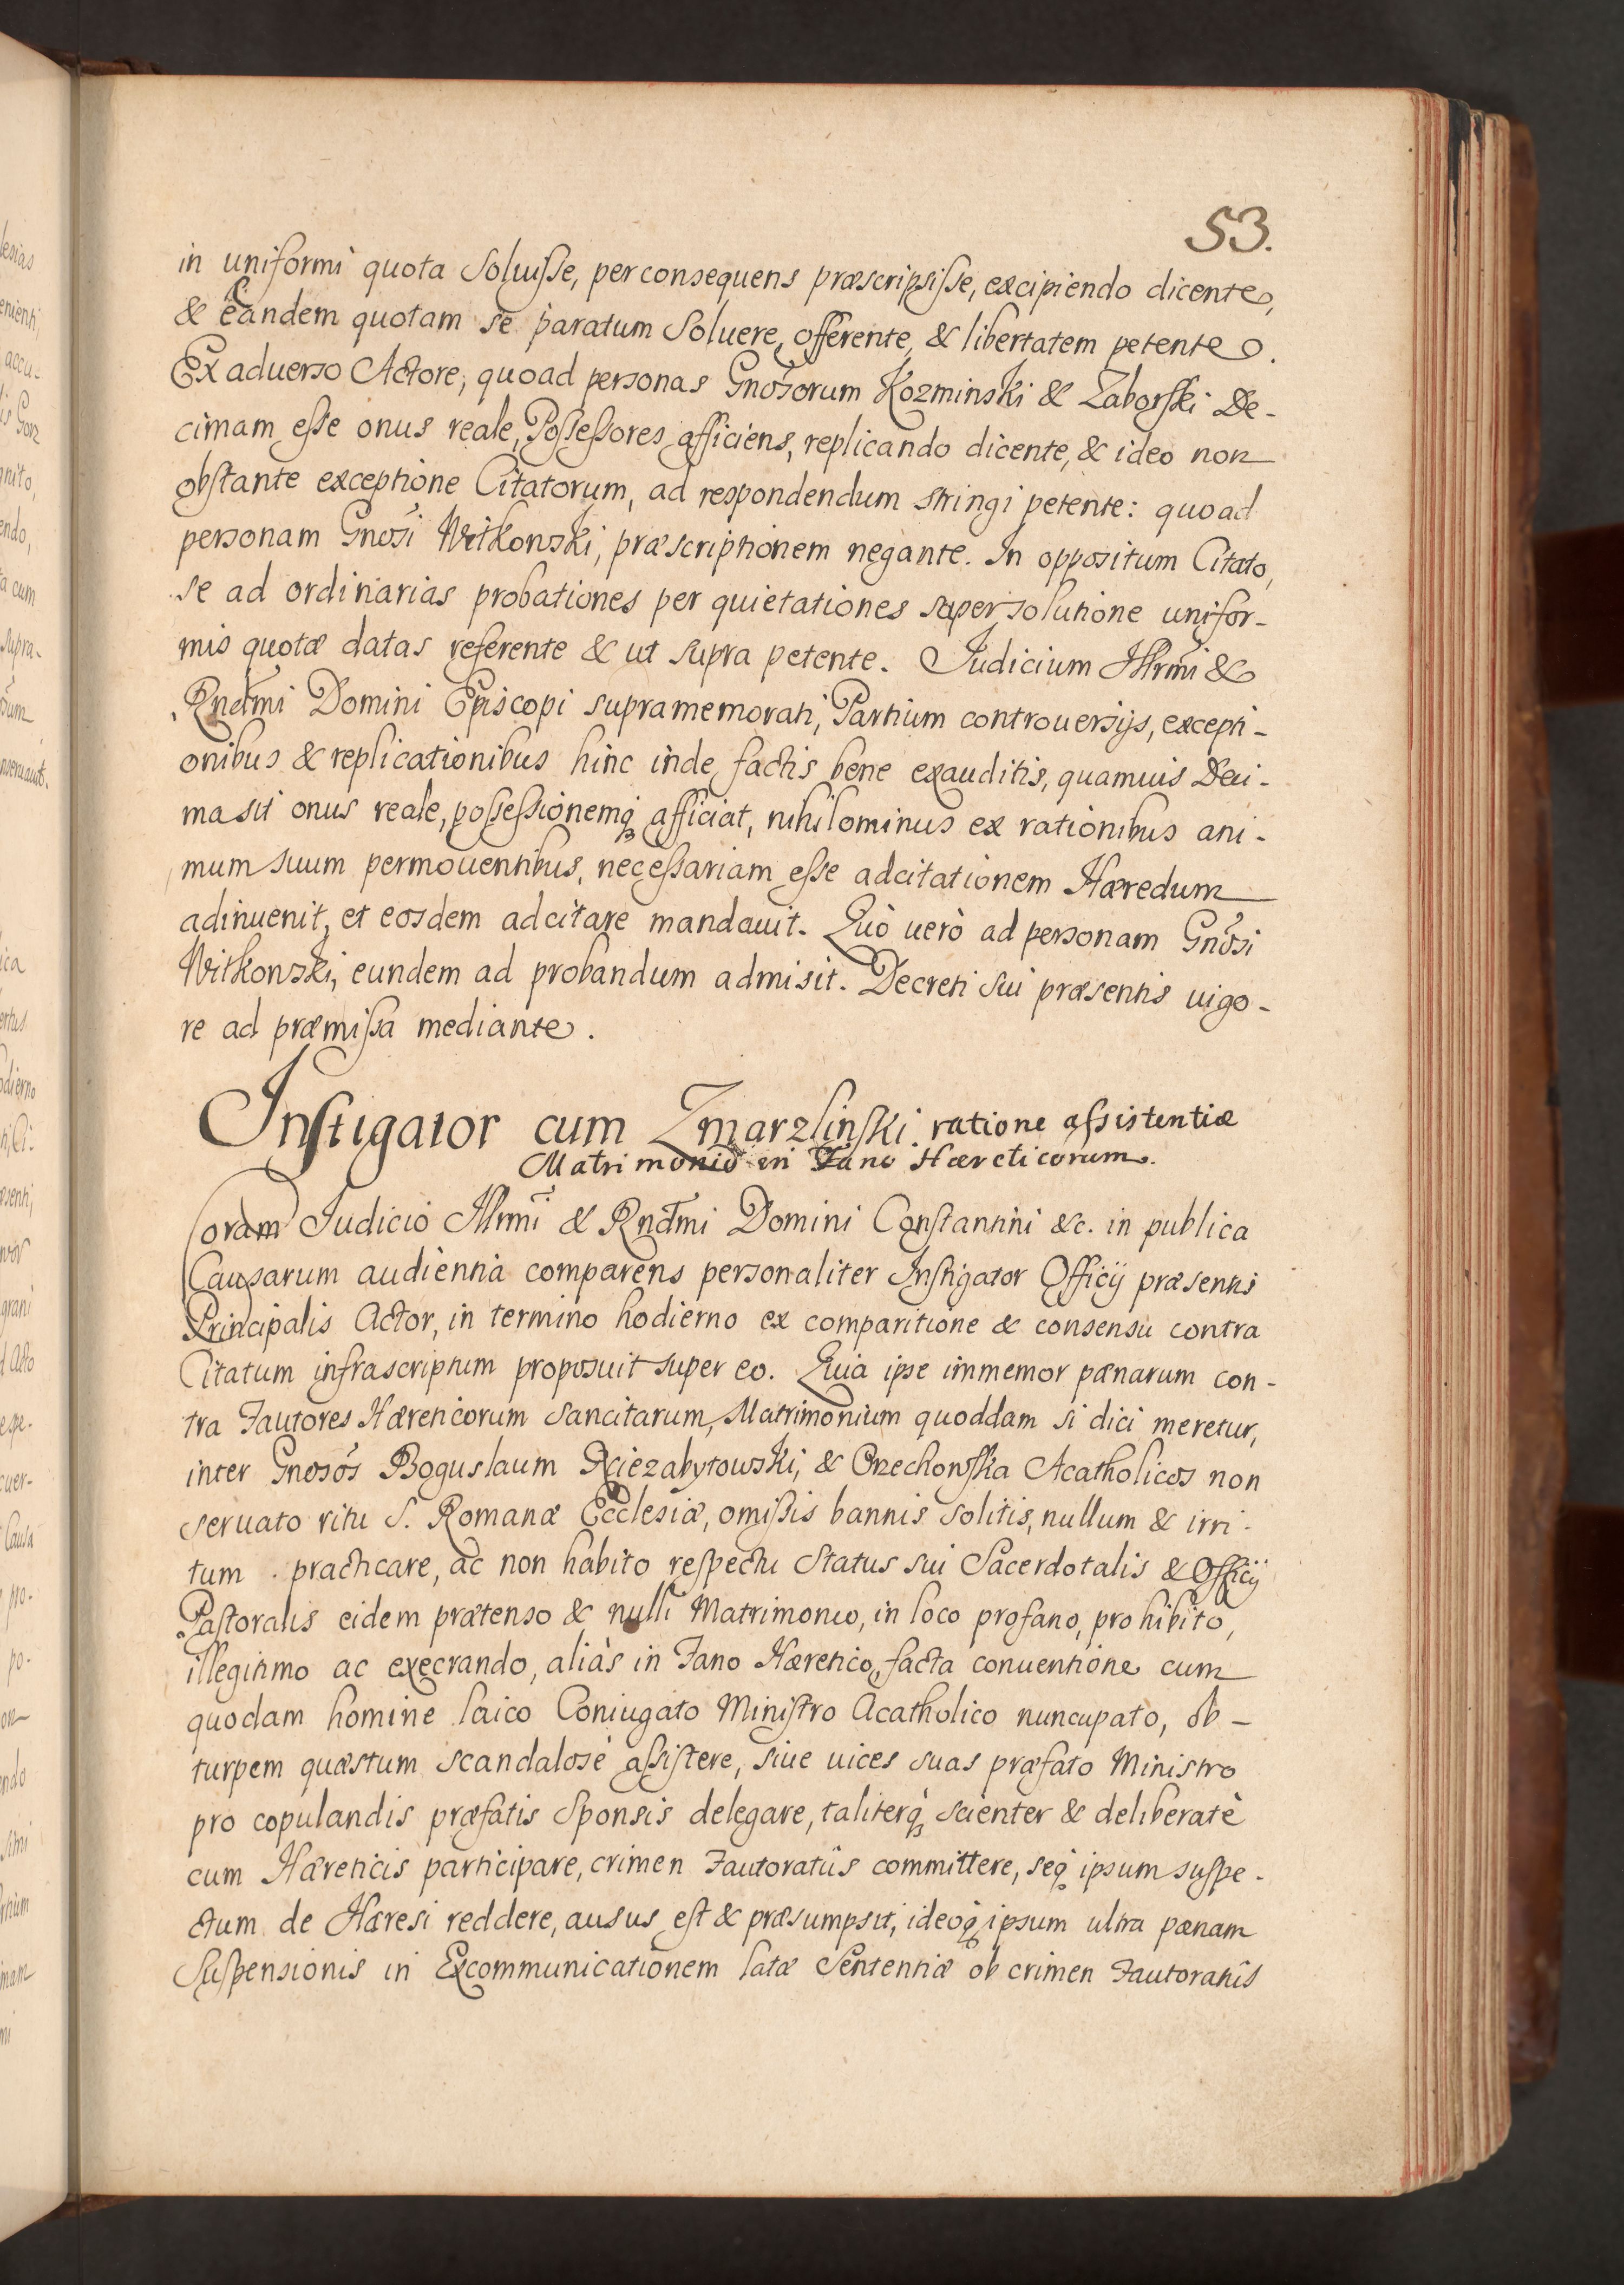 53.
in uniformi quota soluisse, per consequens præscripsisse, excipiendo dicente,
& eandem quotam se paratum soluere, offerente, & libertatem petente.
Ex aduerso Actore, quoad personas Gnosorum Kozminski & Zaborski De-
cimam esse onus reale, Possessores afficiens, replicando dicente, & ideo non
obstante exceptione Citatorum, ad respondendum stringi petente: quoad
personam Gnosi Witkonski, præscriptionem negante. In oppositum Citato,
se ad ordinarias probationes per quietationes super solutione unifor-
mis quotæ datas referente & ut supra petente. Judicium Illrmi &
Rndmi Domini Episcopi supramemorati, Partium controuersijs, excepti-
onibus & replicationibus hinc inde factis bene exauditis, quamuis Deci-
ma sit onus reale, possessionemq afficiat, nihilominus ex rationibus ani-
mum suum permouentibus, necessariam esse adcitationem Hæredum
adinuenit, et eosdem adcitare mandauit. Quò uerò ad personam Gnosi
Witkonski, eundem ad probandum admisit. Decreti sui præsentis uigo-
re ad præmissa mediante.
Instigator cum Zmarzlinski ratione assistentiæ
Matrimonio in Fano Hæreticorum.
Coram Judicio Illrmi & Rndmi Domini Constantini &c. in publica
Causarum audientia comparens personaliter Instigator Officij præsentis
Principalis Actor, in termino hodierno ex comparitione & consensu contra
Citatum infrascriptum proposuit super eo. Quia ipse immemor pænarum con-
tra Fautores Hæreticorum sancitarum, Matrimonium quoddam si dici meretur,
inter Gnosos Boguslaum Xciezabytowski, & Orzechowska Acatholicos non
seruato ritu S. Romanæ Ecclesiæ, omissis bannis solitis, nullum & irri-
tum practicare, ac non habito respectu Status sui Sacerdotalis & Officij
Pastoralis eidem prætenso & nulli Matrimonio, in loco profano, prohibito,
illegitimo ac execrando, aliàs in Fano Hæretico, facta conuentione cum
quodam homine laico Coniugato Ministro Acatholico nuncupato, ob
turpem quæstum scandalosè assistere, siue uices suas præfato Ministro
pro copulandis præfatis Sponsis delegare, taliterq scienter & deliberatè
cum Hæreticis participare, crimen Fautoratûs committere, seq ipsum suspe-
ctum de Hæresi reddere, ausus est & præsumpsit, ideoq ipsum ultra pænam
Suspensionis in Excommunicationem latæ Sententiæ ob crimen Fautoratûs